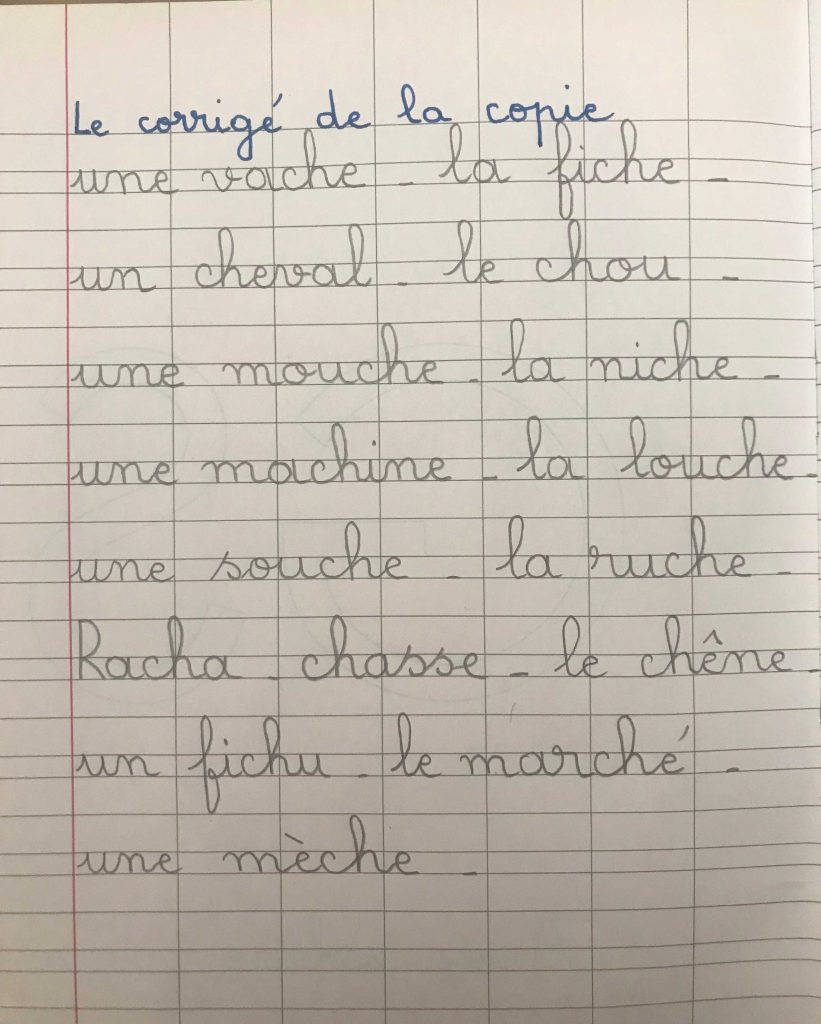 Le corrigé de la copie
une vache - la fiche -
un cheval - le chou -
une mouche - la niche -
une machine - la louche -
une souche - la ruche -
Racha chasse - le chêne -
un fichu - le marché -
une mèche -